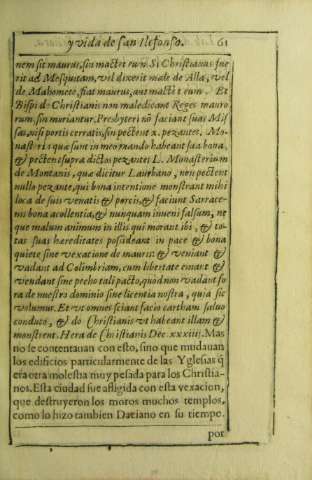 y vida de san Ilefonso. 61
nem sit maurus, sin mactẽt eum. Si Christianus fue
rit ad Mesquitam, vel dixerit male de Alla, vel
de Mahomete, fiat maurus, aut mactẽt eum. Et
Bispi de Christianis non maledicant Reges mauro
rum, sin muriantur. Presbyteri nõ faciant suas Mis
sas, nisi portis cerratis, sin pectent x. pezantes. Mo-
nasteria quæ sunt in meo mando habeant sua bona,
& pectent supra dictos pezantes L. Monasterium
de Montanis, quæ dicitur Laurbano, non pectent
nullo pezante, qui bona intentione monstrant mihi
loca de suis venatis & porcis, & faciunt Sarrace-
nis bona acollentia, & nunquam inueni falsum, ne
que malum animum in illis qui morant ibi, & to-
tas suas hæreditates possideant in pace & bona
quiete sine vexatione de mauris: & veniant &
vadant ad Colimbriam, cum libertate emant &
vendant sine pecho tali pacto, quòd non vadant fo
ra de nuestro dominio sine licentia nostra, quia sic
volumus. Et vt omnes sciant facio cartham saluo
conduto, & do Christianis vt habeant illam &
monstrent. Hera de Christianis Dcc. xxxiiij. Mas
no se contentauan con esto, sino que mudauan
los edificios particularmente de las Yglesias q̃
era otra molestia muy pesada para los Christia-
nos. Esta ciudad fue afligida con esta vexacion,
que destruyeron los moros muchos templos,
como lo hizo tambien Daciano en su tiempo.
por